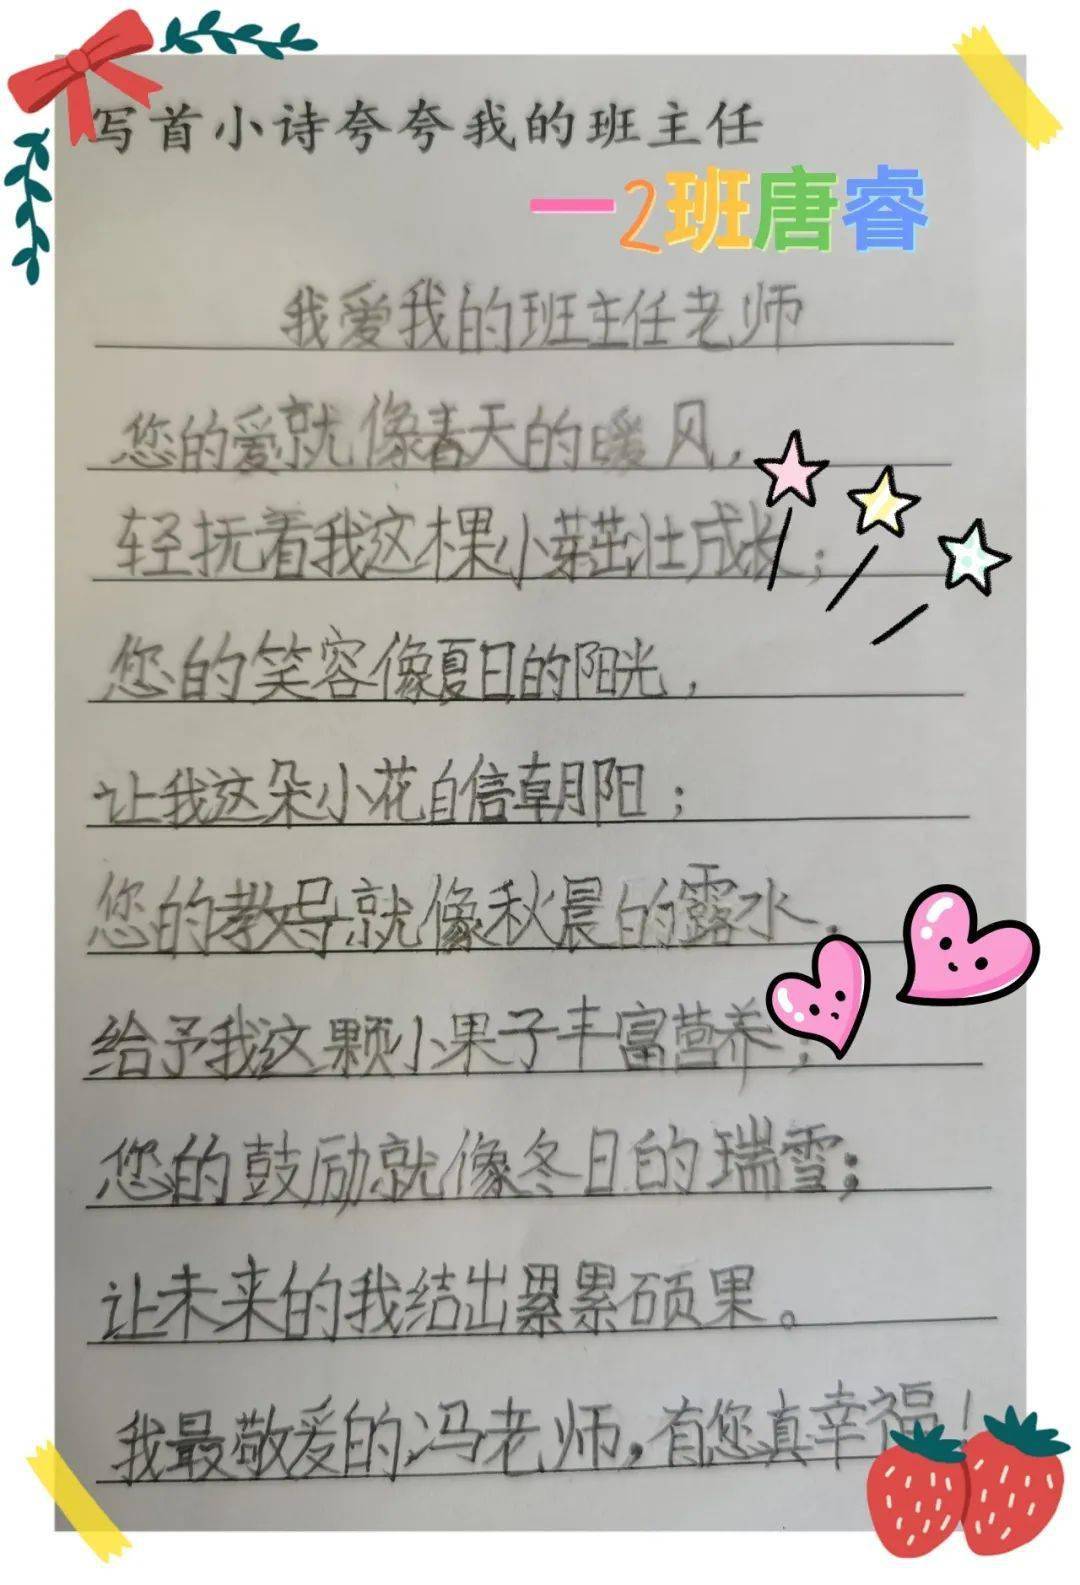 写首小诗夸夸我的班主任
一2班唐睿
我爱我的班主任老师
您的爱就像春天的暖风，
轻抚着我这棵小芽茁壮成长；
您的笑容像夏日的阳光，
让我这朵小花自信朝阳；
您的教导就像秋晨的露水，
给予我这颗小果子丰富营养；
您的鼓励就像冬日的瑞雪；
让未来的我结出累累硕果。
我最敬爱的冯老师，有您真幸福！